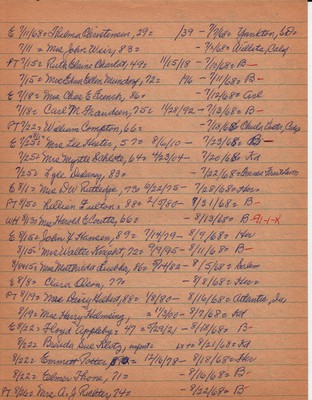 E 7/11/68= Thelma Christensen, 29= /39 - 7/7/68= Yankton, 60=
7/11 = Mrs. John Weir, 83= - 7/9/68= Willits, Calif
PT 7/15= Ruth Elaine Charlet, 49= 11/15/18 - 7/11/68= B-
7/15= Mrs Edna Ellen Mundorf, 72= - 7/11/68= B-
E 7/18= Mrs Chas E French, 86= - 7/12/68=
7/18= Carl M. Frandsen, 75= 11/28/92 - 7/13/68= B-
PT 7/22= William Compton, 66= - 7/10/68=
E 7/25= Mrs Lee Hester, 57= 8/6/10 - 7/23/68= B-
7/25= Mrs Myrtle DeKlotz, 64= 4/23/04 - 7/20/68= Kd
7/25= Lyle Delaney, 83= - 7/22/68=
E 8/1= Mrs DW Rutledge, 73= 9/22/75 - 7/28/68= Hor
PT 7/5= Lillian Fulton, 88= 2/5/80 - 8/31/68= B-
WH 8/13= Mrs Harold E Coutts, 66= - 8/13/68= B-91-1-X
E 8/15= John F. Hansen, 89= 7/14/79 - 8/7/68= Hor
8/15= Mrs Walter Knight, 72= 9/9/95 - 8/11/68= B-
8/15= Mrs Mathilda Luebke, 86= 9/14/82 - 8/5/68= Salem
E 8/8= Clara Olson, 77= - 8/8/68= Hor
PT 8/19= Mrs Henry Gerhard, 88= 1/8/80 - 8/16/68= Atlantic, Ia,
8/19= Mrs Harry Helmsing, = 1/3/00 - 8/7/68= Kd
E 8/22= Floyd Appleby, 47 = 9/29/21 - 8/18/68= B-
8/22 Brenda Sue Klotz, infant= - 8/21/68= Kd
8/22= Emmett Potter, = 12/16/78 - 8/18/68= Hor
8/22= Elmer Thone, 71= - 8/16/68= B-
PT 8/26= Mrs. A. J. Richter, 74= - 8/22/68= B-